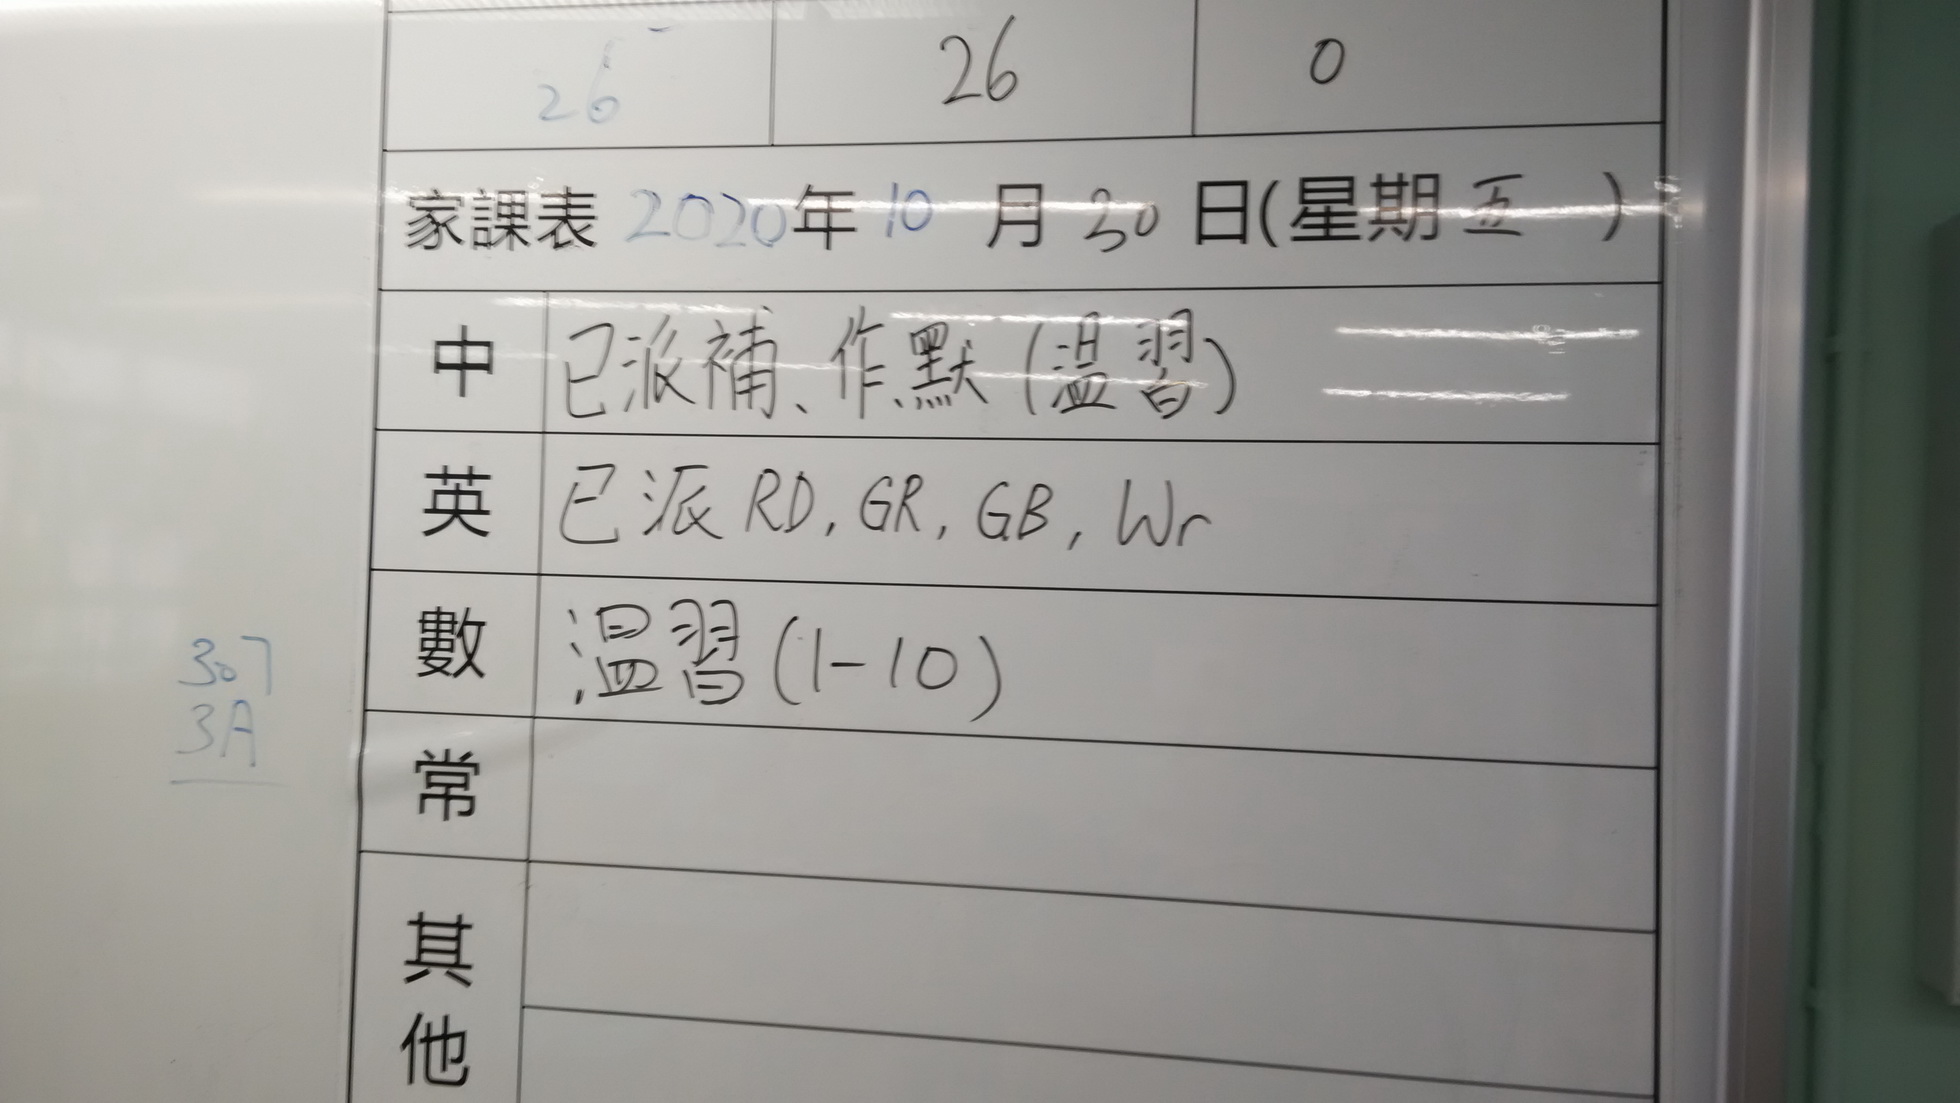 26 26 0
家課表 2020年 10 月 30 日(星期 五 )
中 已派補、作、默(溫習)
英 已派 RD, GR, GB, Wr
數 溫習(1-10)
307
3A
常
其
他